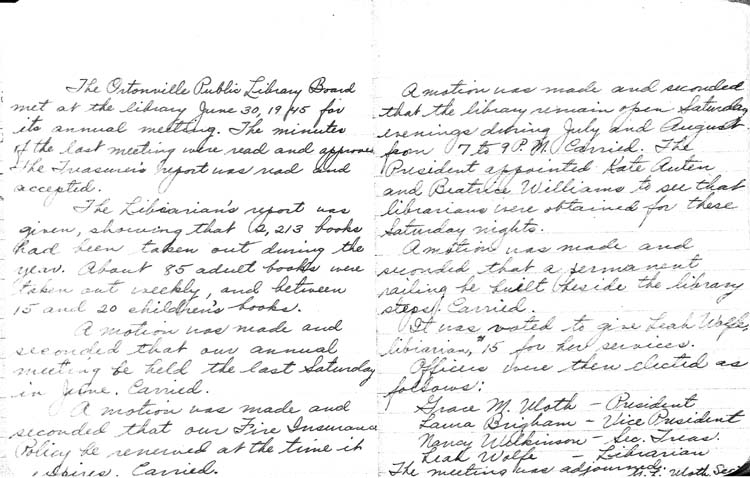 The Ortonville Public Library Board
met at the library June 30, 1945 for
its annual meeting. The minutes
of the last meeting were read and approved
The Treasurer's report was read and
accepted.
The Librarian's report was
given, showing that 2,213 books
had been taken out during the
year. About 85 adult books were
taken out weekly, and between
15 and 20 children's books.
A motion was made and
seconded that our annual
meeting be held the last Saturday
in June. Carried.
A motion was made and
seconded that our Fire Insurance
Policy be renewed at the time it
expires. Carried.
A motion was made and seconded
that the library remain open Saturday
evenings during July and August
from 7 to 9 P.M. Carried. The
President appointed Kate Auten
and Beatrice Williams to see that
librarians were obtained for these
Saturday nights.
A motion was made and
seconded that a permanent
railing be built beside the library
steps. Carried.
It was voted to give Leah Wolfe,
librarian, $15 for her services.
Officers were then elected as
follows:
Grace M. Uloth - President
Laura Brigham - Vice President
Nancy Wilkinson - Sec. Treas.
Leah Wolfe - Librarian
The meeting was adjourned.
Uloth Sec.